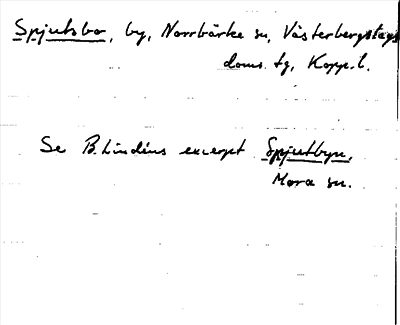 Spjutsbo, by, Norrbärke sn, Västerbergslags
doms. tg, Kopp. l.
Se B. Lindéns excerpt Spjutbyn,
Mora sn.